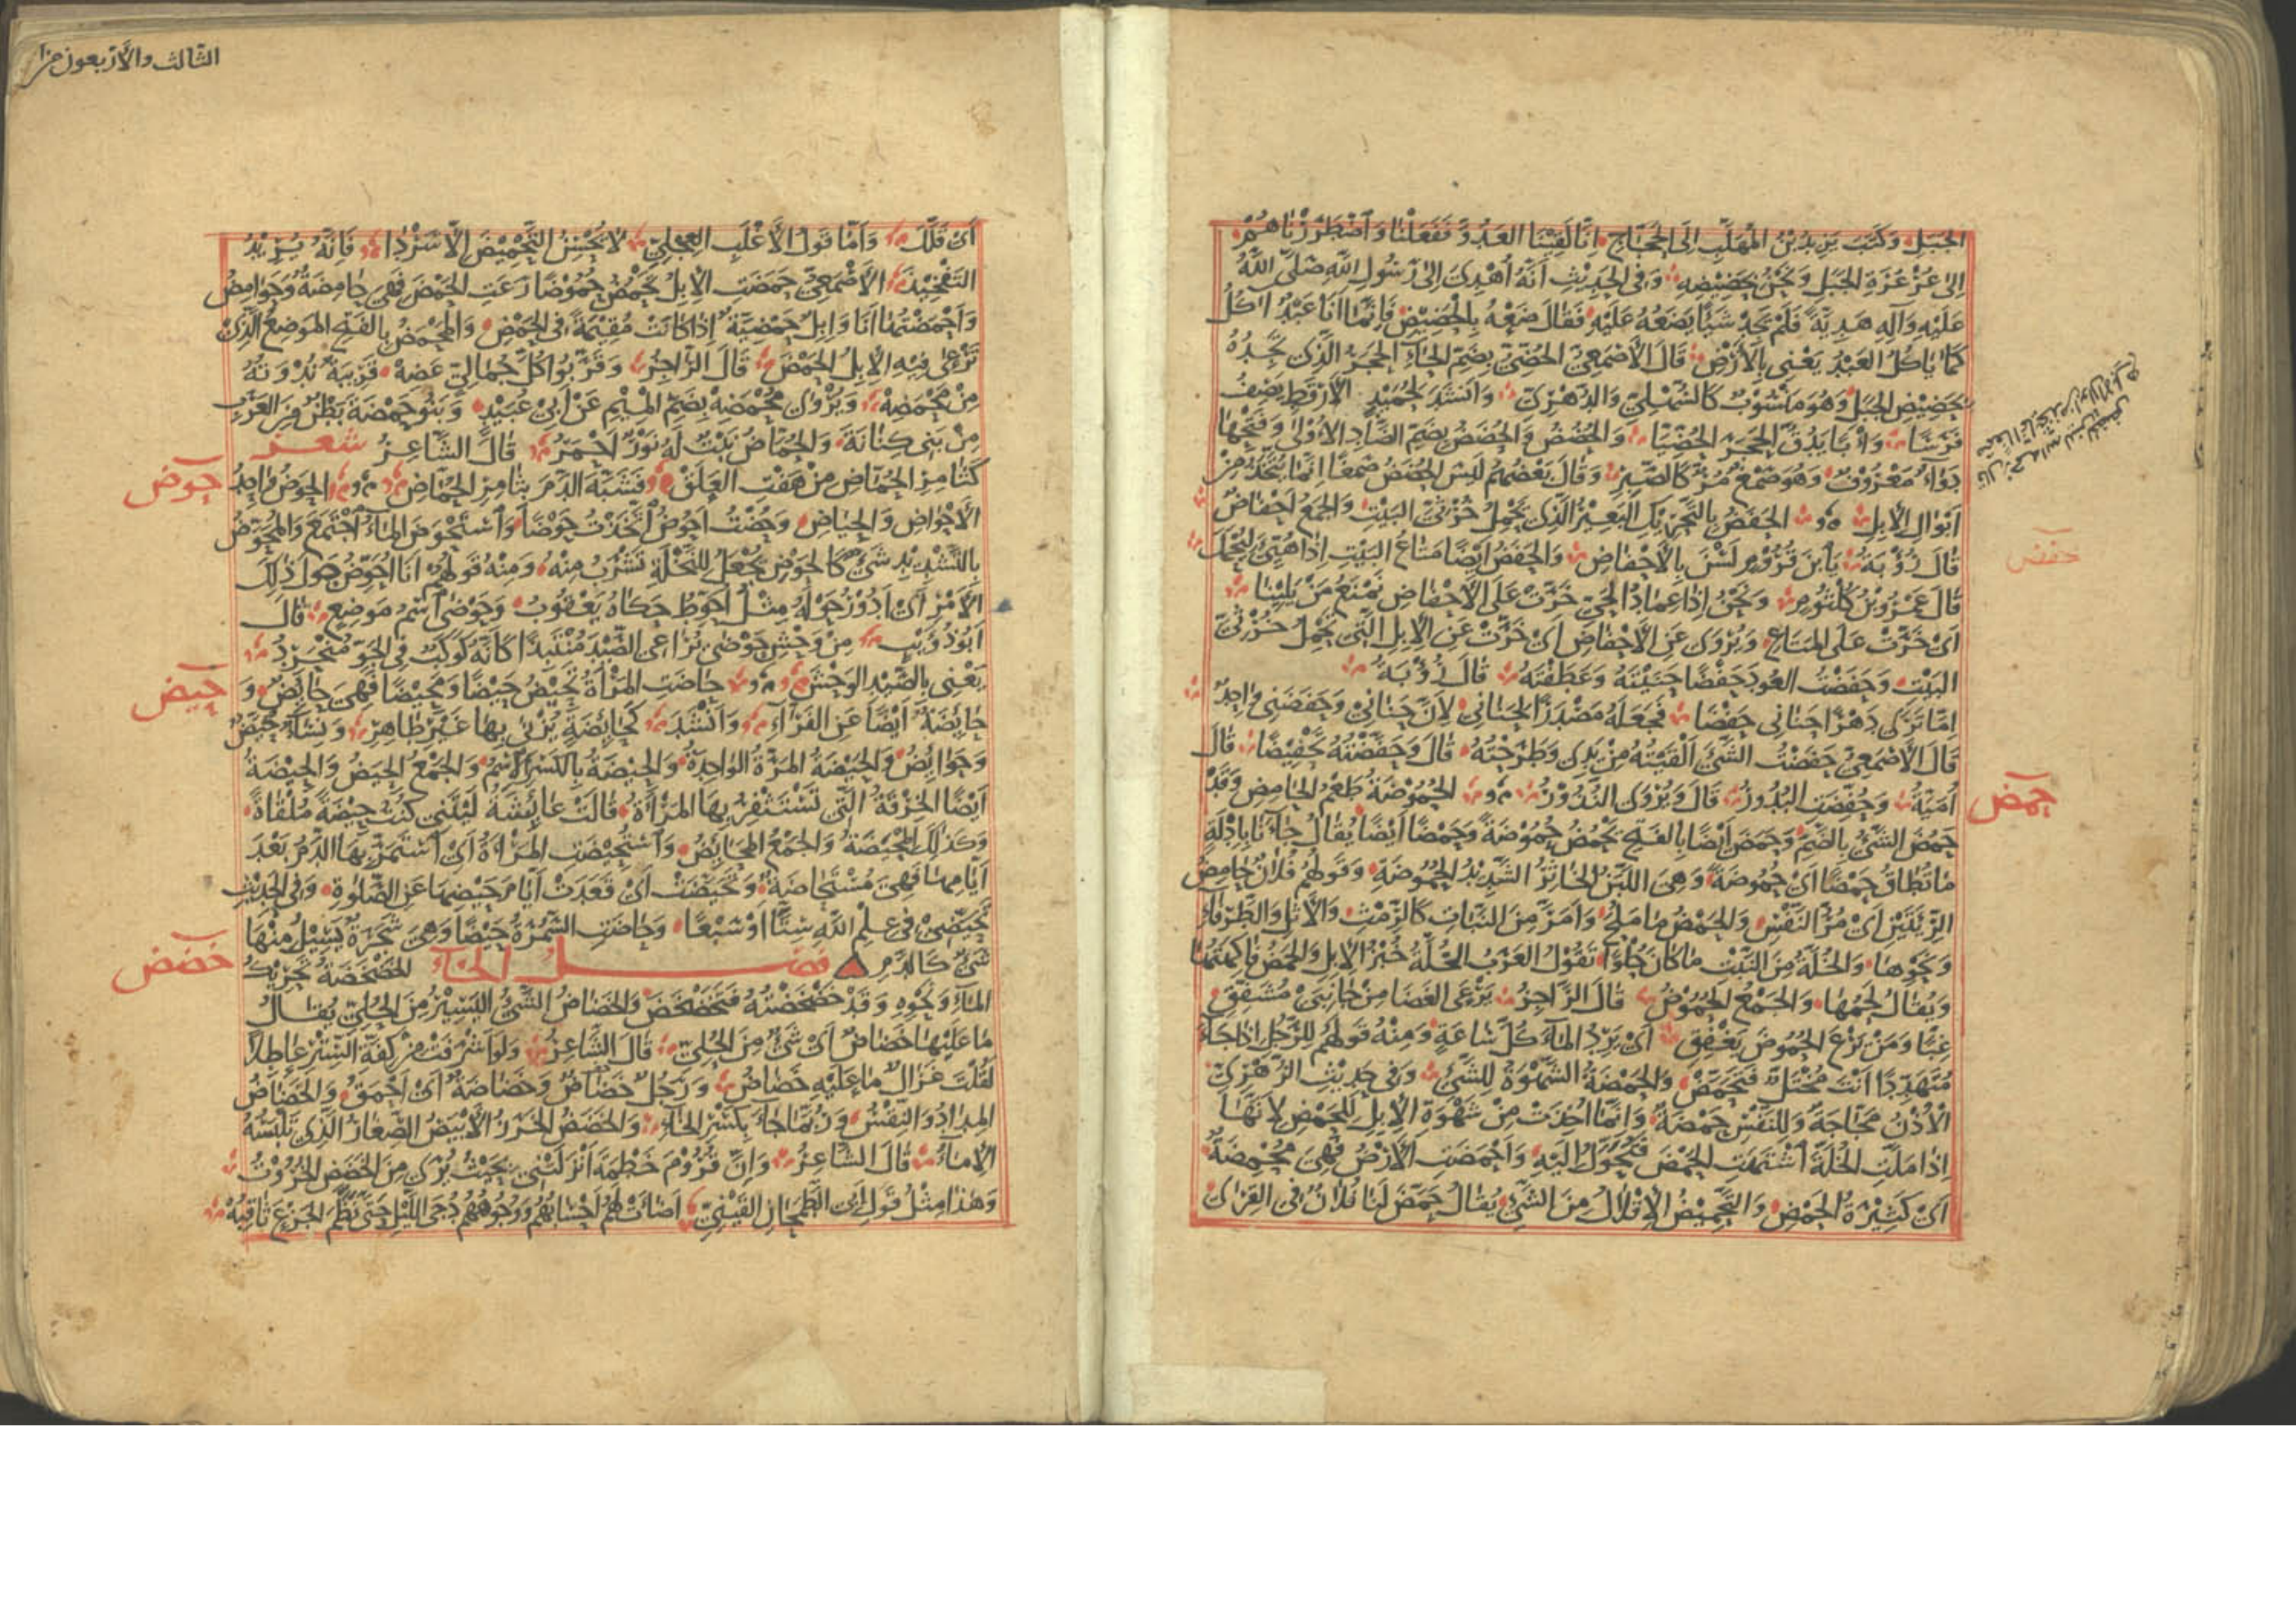 الجَبَلِ وَكَتَبَ يَزِيدُ بْنُ المُهَلَّبِ اِلَى الحَجَّاجِ اِنَّا لَقِيْنَا العَدُوَّ فَفَعَلْنَا وَاضْطَرَرْنَاهُمْ
اِلىٰ عُرْعُرَةِ الجَبَلِ وَنَحْنُ بِحَضِيْضِهِ وَفِى الحَدِيْثِ اَنَّهُ اُهْدِىَ اِلىٰ رَسُولِ اللّٰهِ صَلَّى اللّٰهُ
عَلَيْهِ وَآلِهِ هَدِيَّةٌ فَلَمْ يَجِدْ شَيْئًا يَضَعُهُ عَلَيْهِ فَقَالَ ضَعْهُ بِالحَضِيْضِ فَاِنَّمَا اَنَا عَبْدٌ اٰكُلُ
كَمَا يَاكُلُ العَبْدُ يَعْنِى بِالاَرْضِ قَالَ الاَصْمَعِىُّ الحُضِّىُّ بِضَمِّ الحَاءِ الحَجَرُ الَّذِى تَجِدُهُ
بِحَضِيْضِ الجَبَلِ وَهُوَ مَنْسُوْبٌ كَالسُّهْلِىِّ وَالدُّهْرِىِّ وَاَنْشَدَ لِحُمَيْدٍ الاَرْقَطِ يَصِفُ
فَرَسًا وَاْبًا يَدُقُّ الحَجَرَ الحُضِّيَّا وَالحُضُضُ وَالحُضَضُ بِضَمِّ الضَّادِ الاُوْلىٰ وَفَتْحِهَا
دَوَاءٌ مَعْرُوْفٌ وَهُوَ صَمْغٌ مُرٌّ كَالصَّبِرِ وَقَالَ بَعْضُهُمْ لَيْسَ الحُضَضُ صَمْغًا اِنَّمَا يُتَّخَذُ مِنْ
اَبْوَالِ الاِبِلِ الحَفَضُ بِالتَّحْرِيْكِ البَعِيْرُ الَّذِى يَحْمِلُ خُرْثِىَّ البَيْتِ وَالجَمْعُ اَحْفَاضٌ
قَالَ رُؤْبَةُ يَا بْنَ قُرُوْمٍ لَسْنَ بِالاَحْفَاضِ وَالحَفَضُ اَيْضًا مَتَاعُ البَيْتِ اِذَا هُيِّئَ لِيُحْمَلَ
قَالَ عَمْرُو بْنُ كُلْثُوْمٍ وَنَحْنُ اِذَا عِمَادُ الحَىِّ خَرَّتْ عَلَى الاَحْفَاضِ نَمْنَعُ مَنْ يَلِيْنَا
اَىْ خَرَّتْ عَلَى المَتَاعِ وَيُرْوَى عَنِ الاَحْفَاضِ اَىْ خَرَّتْ عَنِ الاِبِلِ الَّتِى تَحْمِلُ خُرْثِىَّ
البَيْتِ وَحَفَضْتُ العُودَ حَفْضًا حَنَيْتَهُ وَعَطَفْتَهُ قَالَ رُؤْبَةُ
اِمَّا تَرَى دَهْرًا حَنَانِى حَفْضًا فَجَعَلَهُ مَصْدَرًا لِحَنَانِى لِاَنَّ حَنَانِى وَحَفَضَنِى وَاحِدٌ
قَالَ الاَصْمَعِىُّ حَفَضْتُ الشَّىْءَ اَلْقَيْتَهُ مِنْ يَدِى وَطَرَحْتَهُ قَالَ وَحَفَّضْتُهُ تَحْفِيْضًا قَالَ
اُمَيَّةُ وَحُفِّضَتِ البُدُورُ قَالَ وَيُرْوَى النُّذُوْرُ الحُمُوْضَةُ طَعْمُ الحَامِضِ وَقَدْ
حَمُضَ الشَّىْءُ بِالضَّمِّ وَحَمَضَ اَيْضًا بِالفَتْحِ يَحْمُضُ حُمُوْضَةً وَحَمْضًا اَيْضًا يُقَالُ جَاءَنَا بِاِدْلَةٍ
مَا تُطَاقُ حَمْضًا اَىْ حُمُوضَةً وَهِىَ اللَّبَنُ الخَاثِرُ الشَّدِيْدُ الحُمُوضَةِ وَقَوْلُهُمْ فُلَانٌ حَامِضُ
الرِّئَتَيْنِ اَىْ مُرُّ النَّفْسِ وَالحَمْضُ مَا مَلُحَ وَاَمَرَّ مِنَ النَّبَاتِ كَالرِّمْثِ وَالاَثْلِ وَالطَّرْفَاءِ
وَنَحْوِهَا وَالخُلَّةُ مِنَ النَّبْتِ مَا كَانَ حُلْوًا تَقُوْلُ العَرَبُ الخُلَّةُ خُبْزُ الاِبِلِ وَالحَمْضُ فَاكِهَتُهَا
وَيُقَالُ لَحْمُهَا وَالجَمْعُ الحُمُوْضُ قَالَ الرَّاجِزُ يَرْعَى الغَضَا مِنْ جَانِبَىْ مُشَفَّقِ
غِبًّا وَمَنْ يَرْعَ الحُمُوضَ يَغْفِقِ اَىْ يَرِدُ المَاءَ كُلَّ سَاعَةٍ وَمِنْهُ قَوْلُهُمْ لِلرَّجُلِ اِذَا جَاءَ
مُتَهَدِّدًا اَنْتَ مُخْتَلٌّ فَتَحَمَّضْ وَالحَمْضَةُ الشَّهْوَةُ لِلشَّىْءِ وَفِى حَدِيْثِ الزُّهْرِىِّ
الاُذُنُ مَجَّاجَةٌ وَلِلنَّفْسِ حَمْضَةٌ وَاِنَّمَا اُخِذَتْ مِنْ شَهْوَةِ الاِبِلِ لِلْحَمْضِ لِاَنَّهَا
اِذَا مَلَّتِ الخُلَّةَ اشْتَهَتِ الحَمْضَ فَتَحَوَّلُ اِلَيْهِ وَاَحْمَضَتِ الاَرْضُ فَهِىَ مُحْمِضَةٌ
اَىْ كَثِيْرَةُ الحَمْضِ وَالتَّحْمِيْضُ الاِقْلَالُ مِنَ الشَّىْءِ يُقَالُ حَمَّضَ لَنَا فُلَانٌ فِى القِرَى
حفض
حمض
الثَّالث والاَربعون
اَىْ قَلَّلَ وَاَمَّا قَوْلُ الاَغْلَبِ العِجْلِىِّ لَا يُحْسِنُ التَّحْمِيْضَ اِلَّا سَرْدَا فَاِنَّهُ يُرِيْدُ
التَّفْخِيْذَ الاَصْمَعِىُّ حَمَضَتِ الاِبِلُ تَحْمُضُ حُمُوْضًا رَعَتِ الحَمْضَ فَهِىَ حَامِضَةٌ وَحَوَامِضُ
وَاَحْمَضْتُهَا اَنَا وَاِبِلٌ حَمْضِيَّةٌ اِذَا كَانَتْ مُقِيْمَةً فِى الحَمْضِ وَالمَحْمَضُ بِالفَتْحِ المَوْضِعُ الَّذِى
تَرْعَى فِيْهِ الاِبِلُ الحَمْضَ قَالَ الرَّاجِزُ وَقَرَّبُوا كُلَّ جُمَالِىٍّ عَضِهْ قَرِيْبَةٌ نُدْوَتُهُ
مِنْ مَحْمَضِهْ وَيُرْوَى مُحْمَضِهْ بِضَمِّ المِيْمِ عَنْ اَبِى عُبَيْدٍ وَبَنُو حَمْضَةَ بَطْنٌ مِنَ العَرَبِ
مِنْ بَنِى كِنَانَةَ وَالحُمَّاضُ نَبْتٌ لَهُ نَوْرٌ اَحْمَرُ قَالَ الشَّاعِرُ شعر
حوض
كَثَامِرِ الحُمَّاضِ مِنْ هَفْتِ العَلَقْ فَشَبَّهَ الدَّمَ بِثَامِرِ الحُمَّاضِ الحَوْضُ وَاحِدُ
الاَحْوَاضِ وَالحِيَاضِ وَحُضْتُ اَحُوْضُ اتَّخَذْتُ حَوْضًا وَاسْتَحْوَضَ المَاءُ اجْتَمَعَ وَالمُحَوَّضُ
بِالتَّشْدِيْدِ شَىْءٌ كَالحَوْضِ يُجْعَلُ لِلنَّخْلَةِ تَشْرَبُ مِنْهُ وَمِنْهُ قَوْلُهُمْ اَنَا اُحَوِّضُ حَوْلَ ذٰلِكَ
الاَمْرِ اَىْ اَدُوْرُ حَوْلَهُ مِثْلُ اُحَوِّطُ حَكَاهُ يَعْقُوْبُ وَحَوْضَى اسْمُ مَوْضِعٍ قَالَ
اَبُو ذُؤَيْبٍ مِنْ وَحْشِ حَوْضَى يُرَاعِى الصَّيْدَ مُنْتَبِذًا كَاَنَّهُ كَوْكَبٌ فِى الجَوِّ مُنْحَرِدُ
حيض
يَعْنِى بِالصَّيْدِ الوَحْشَ حَاضَتِ المَرْأَةُ تَحِيْضُ حَيْضًا وَمَحِيْضًا فَهِىَ حَائِضٌ وَ
حَائِضَةٌ اَيْضًا عَنِ الفَرَّاءِ وَاَنْشَدَ كَحَائِضَةٍ يُزْنَى بِهَا غَيْرِ طَاهِرِ وَنِسَاءٌ حُيَّضٌ
وَحَوَائِضُ وَالحَيْضَةُ المَرَّةُ الوَاحِدَةُ وَالحِيْضَةُ بِالكَسْرِ الاِسْمُ وَالجَمْعُ الحِيَضُ وَالحِيْضَةُ
اَيْضًا الخِرْقَةُ الَّتِى تَسْتَثْفِرُ بِهَا المَرْأَةُ قَالَتْ عَائِشَةُ لَيْتَنِى كُنْتُ حِيْضَةً مُلْقَاةً
وَكَذٰلِكَ المَحِيْضَةُ وَالجَمْعُ المَحَايِضُ وَاسْتُحِيْضَتِ المَرْأَةُ اَىْ اسْتَمَرَّ بِهَا الدَّمُ بَعْدَ
اَيَّامِهَا فَهِىَ مُسْتَحَاضَةٌ وَتَحَيَّضَتْ اَىْ قَعَدَتْ اَيَّامَ حَيْضِهَا عَنِ الصَّلٰوةِ وَفِى الحَدِيْثِ
تَحَيَّضِىْ فِى عِلْمِ اللّٰهِ سِتًّا اَوْ سَبْعًا وَحَاضَتِ السَّمُرَةُ حَيْضًا وَهِىَ شَجَرَةٌ يَسِيْلُ مِنْهَا
خضض
شَىْءٌ كَالدَّمِ فصل الخاء الخَضْخَضَةُ تَحْرِيْكُ
المَاءِ وَنَحْوِهِ وَقَدْ خَضْخَضْتُهُ فَتَخَضْخَضَ وَالخَضَاضُ الشَّىْءُ اليَسِيْرُ مِنَ الحُلِىِّ يُقَالُ
مَا عَلَيْهَا خَضَاضٌ اَىْ شَىْءٌ مِنَ الحُلِىِّ قَالَ الشَّاعِرُ وَلَوْ اَشْرَفَتْ مِنْ كِفَّةِ السِّتْرِ عَاطِلًا
لَقُلْتَ غَزَالٌ مَا عَلَيْهِ خَضَاضُ وَرَجُلٌ خَضَاضٌ وَخَضَاضَةٌ اَىْ اَحْمَقُ وَالخَضَاضُ
المِدَادُ وَالنِّقْسُ وَرُبَّمَا جَاءَ بِكَسْرِ الخَاءِ وَالخَضَضُ الخَرَزُ الاَبْيَضُ الصِّغَارُ الَّذِى تَلْبَسُهُ
الاِمَاءُ قَالَ الشَّاعِرُ وَاِنَّ قُرُوْمَ خَطْمَةَ اَنْزَلَتْنِى بِحَيْثُ يُرَى مِنَ الخَضَضِ الخُرُوْتُ
وَهٰذَا مِثْلُ قَوْلِ اَبِى الطَّمَحَانِ القَيْنِىِّ اَضَاءَتْ لَهُمْ اَحْسَابُهُمْ وَوُجُوهُهُمْ دُجَى اللَّيْلِ حَتَّى نَظَّمَ الجَزْعَ ثَاقِبُهْ